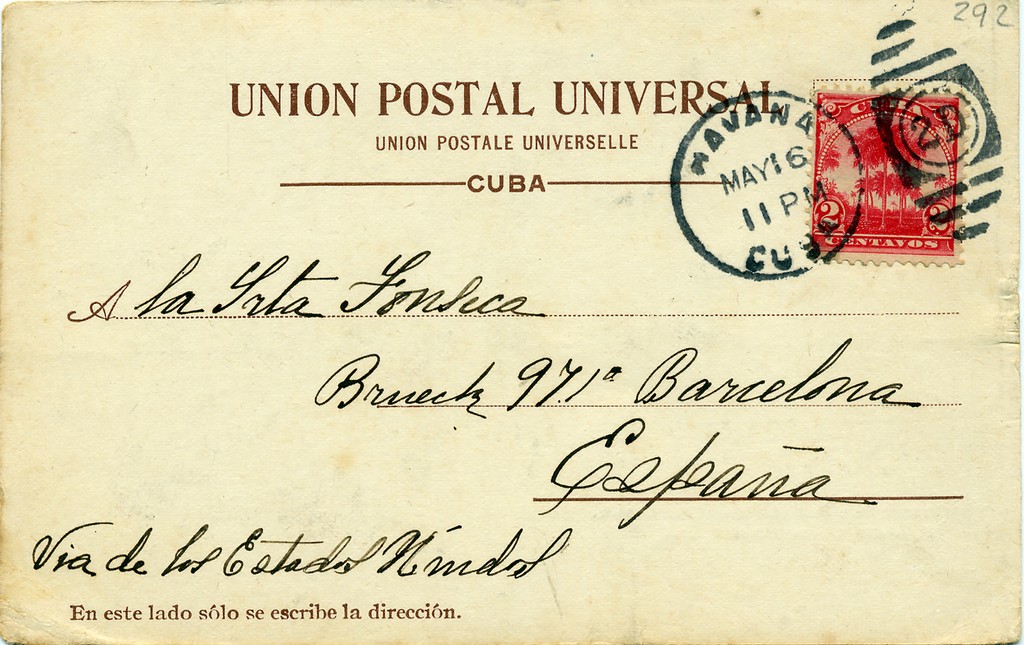 292
UNION POSTAL UNIVERSAL
UNION POSTALE UNIVERSELLE
CUBA
HAVANA
MAY 16
11 PM
CUBA
CUBA
2 2
CENTAVOS
A la Srta Fonseca
Bruech 97 1ª Barcelona
España
Via de los Estados Unidos
En este lado sólo se escribe la dirección.